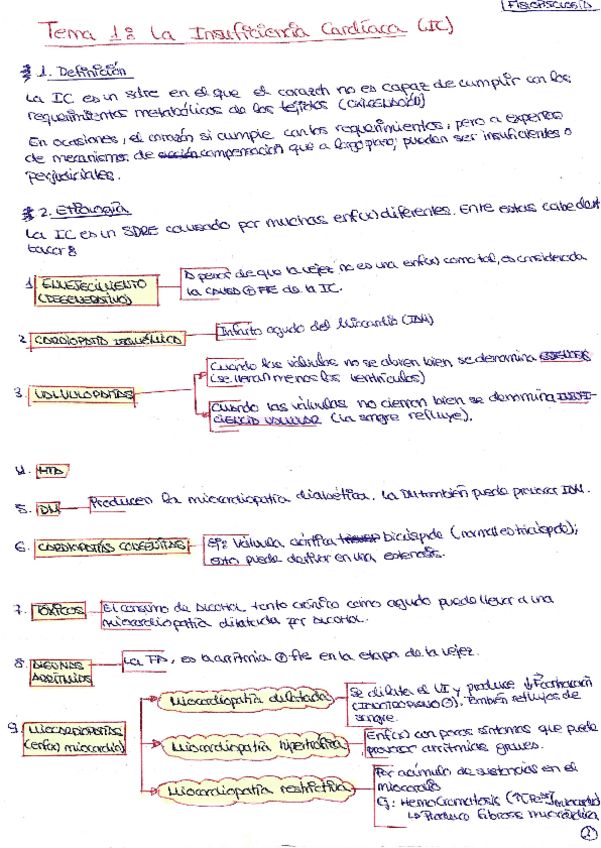 FISIOPATOLOGÍA
Tema 1: La Insuficiencia Cardíaca (IC)
1. Definición
La IC es un sdre en el que el corazón no es capaz de cumplir con los
requerimientos metabólicos de los tejidos (OXIGENACIÓN)
En ocasiones, el corazón si cumple con los requerimientos, pero a expensas
de mecanismos de compensación que a largo plazo, pueden ser insuficientes o
perjudiciales.
2. Etiología
La IC es un SDRE causado por muchas enf(x) diferentes. Entre estas cabe dest
tacar:
1. ENVEJECIMIENTO
(DEGENERATIVO)
A pesar de que la vejez no es una enf(x) como tal, es considerada
la causa ⊕ FTE de la IC.
2. CARDIOPATÍA ISQUÉMICA
Infarto agudo del Miocardio (IAM)
3. VALVULOPATÍAS
Cuando las válvulas no se abren bien se denomina
(se llenan menos los ventrículos)
Cuando las válvulas no cierran bien se denomina INSUFI-
CIENCIA VALVULAR (la sangre refluye).
4. HTA
5. DM
Producen la miocardiopatía diabética. La DM también puede provocar IAM.
6. CARDIOPATÍAS CONGÉNITAS
Ej: Válvula aórtica bicúspide (normal es tricúspide);
esto puede derivar en una estenosis.
7. TÓXICOS
El consumo de Alcohol tanto crónico como agudo puede llevar a una
miocardiopatía dilatada por Alcohol.
8. ALGUNAS
ARRITMIAS
La FA, es la arritmia ⊕ fte en la etapa de la vejez.
9. MIOCARDIOPATÍAS
(enf(x) miocardio)
Miocardiopatía dilatada
Se dilata el VI y produce ↓F contracción
(INOTROPISMO ⊖). También reflujos de
sangre.
Miocardiopatía hipertrófica
Enf(x) con pocos síntomas que puede
provocar arritmias graves.
Miocardiopatía restrictiva
Por acúmulo de sustancias en el
miocardio
Ej: Hemocromatosis (↑Fe miocardio)
↳ Produce fibrosis miocárdica
1